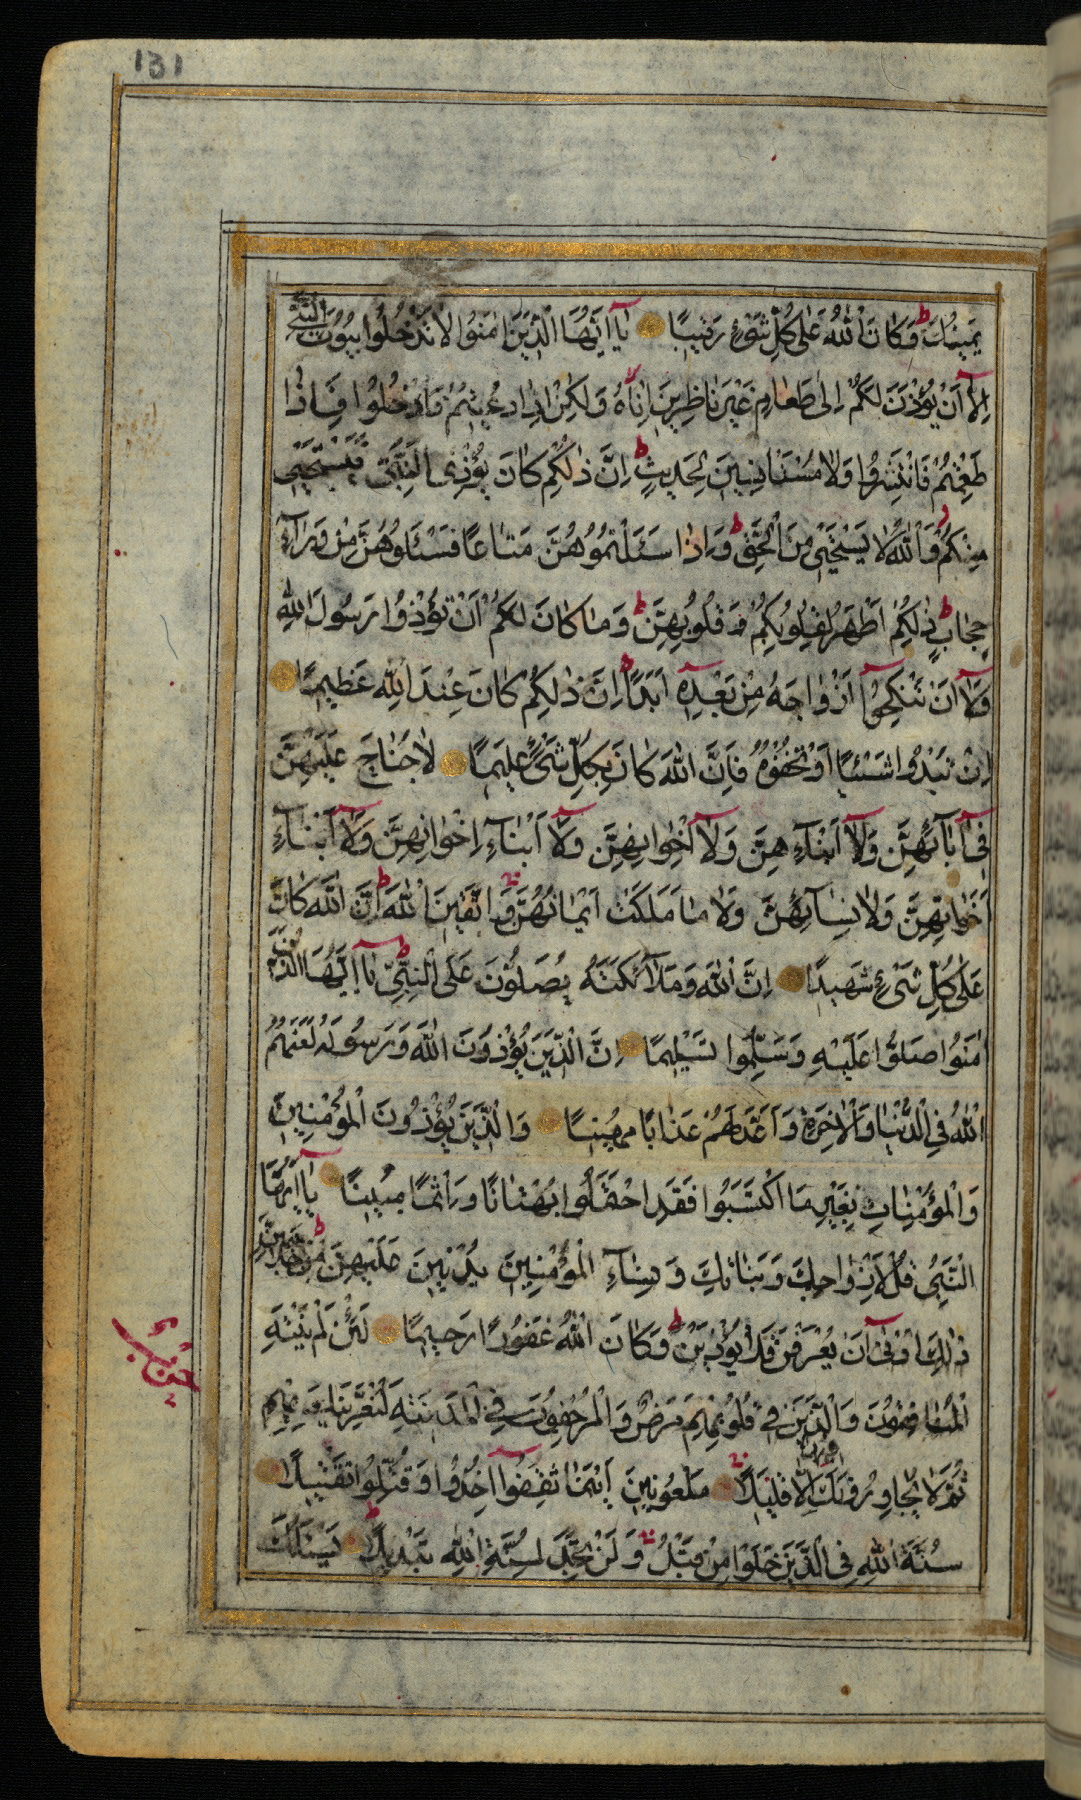 131
يَمِينُكَ وَكَانَ اللهُ عَلَى كُلِّ شَيْءٍ رَقِيبًا يَآ اَيُّهَا الَّذِينَ اٰمَنُوا لَا تَدْخُلُوا بُيُوتَ النَّبِيِّ
اِلَّآ اَنْ يُؤْذَنَ لَكُمْ اِلٰى طَعَامٍ غَيْرَ نَاظِرِينَ اِنَاهُ وَلٰكِنْ اِذَا دُعِيتُمْ فَادْخُلُوا فَاِذَا
طَعِمْتُمْ فَانْتَشِرُوا وَلَا مُسْتَأْنِسِينَ لِحَدِيثٍ اِنَّ ذٰلِكُمْ كَانَ يُؤْذِي النَّبِيَّ فَيَسْتَحْيِي
مِنْكُمْ وَاللهُ لَا يَسْتَحْيِي مِنَ الْحَقِّ وَاِذَا سَئَلْتُمُوهُنَّ مَتَاعًا فَسْئَلُوهُنَّ مِنْ وَرَآءِ
حِجَابٍ ذٰلِكُمْ اَطْهَرُ لِقُلُوبِكُمْ وَقُلُوبِهِنَّ وَمَا كَانَ لَكُمْ اَنْ تُؤْذُوا رَسُولَ اللهِ
وَلَآ اَنْ تَنْكِحُوآ اَزْوَاجَهُ مِنْ بَعْدِهِ اَبَدًا اِنَّ ذٰلِكُمْ كَانَ عِنْدَ اللهِ عَظِيمًا
اِنْ تُبْدُوا شَيْئًا اَوْ تُخْفُوهُ فَاِنَّ اللهَ كَانَ بِكُلِّ شَيْءٍ عَلِيمًا لَا جُنَاحَ عَلَيْهِنَّ
فِيٓ اٰبَآئِهِنَّ وَلَآ اَبْنَآءِهِنَّ وَلَآ اِخْوَانِهِنَّ وَلَآ اَبْنَآءِ اِخْوَانِهِنَّ وَلَآ اَبْنَآءِ
اَخَوَاتِهِنَّ وَلَا نِسَآئِهِنَّ وَلَا مَا مَلَكَتْ اَيْمَانُهُنَّ وَاتَّقِينَ اللهَ اِنَّ اللهَ كَانَ
عَلَى كُلِّ شَيْءٍ شَهِيدًا اِنَّ اللهَ وَمَلَآئِكَتَهُ يُصَلُّونَ عَلَى النَّبِيِّ يَآ اَيُّهَا الَّذِينَ
اٰمَنُوا صَلُّوا عَلَيْهِ وَسَلِّمُوا تَسْلِيمًا اِنَّ الَّذِينَ يُؤْذُونَ اللهَ وَرَسُولَهُ لَعَنَهُمُ
اللهُ فِي الدُّنْيَا وَالْاٰخِرَةِ وَاَعَدَّ لَهُمْ عَذَابًا مُهِينًا وَالَّذِينَ يُؤْذُونَ الْمُؤْمِنِينَ
وَالْمُؤْمِنَاتِ بِغَيْرِ مَا اكْتَسَبُوا فَقَدِ احْتَمَلُوا بُهْتَانًا وَاِثْمًا مُبِينًا يَآ اَيُّهَا
النَّبِيُّ قُلْ لِاَزْوَاجِكَ وَبَنَاتِكَ وَنِسَآءِ الْمُؤْمِنِينَ يُدْنِينَ عَلَيْهِنَّ مِنْ جَلَابِيبِهِنَّ
ذٰلِكَ اَدْنٰىٓ اَنْ يُعْرَفْنَ فَلَا يُؤْذَيْنَ وَكَانَ اللهُ غَفُورًا رَحِيمًا لَئِنْ لَمْ يَنْتَهِ
الْمُنَافِقُونَ وَالَّذِينَ فِي قُلُوبِهِمْ مَرَضٌ وَالْمُرْجِفُونَ فِي الْمَدِينَةِ لَنُغْرِيَنَّكَ بِهِمْ
ثُمَّ لَا يُجَاوِرُونَكَ فِيهَا اِلَّا قَلِيلًا مَلْعُونِينَ اَيْنَمَا ثُقِفُوآ اُخِذُوا وَقُتِّلُوا تَقْتِيلًا
سُنَّةَ اللهِ فِي الَّذِينَ خَلَوْا مِنْ قَبْلُ وَلَنْ تَجِدَ لِسُنَّةِ اللهِ تَبْدِيلًا يَسْئَلُكَ
حزب